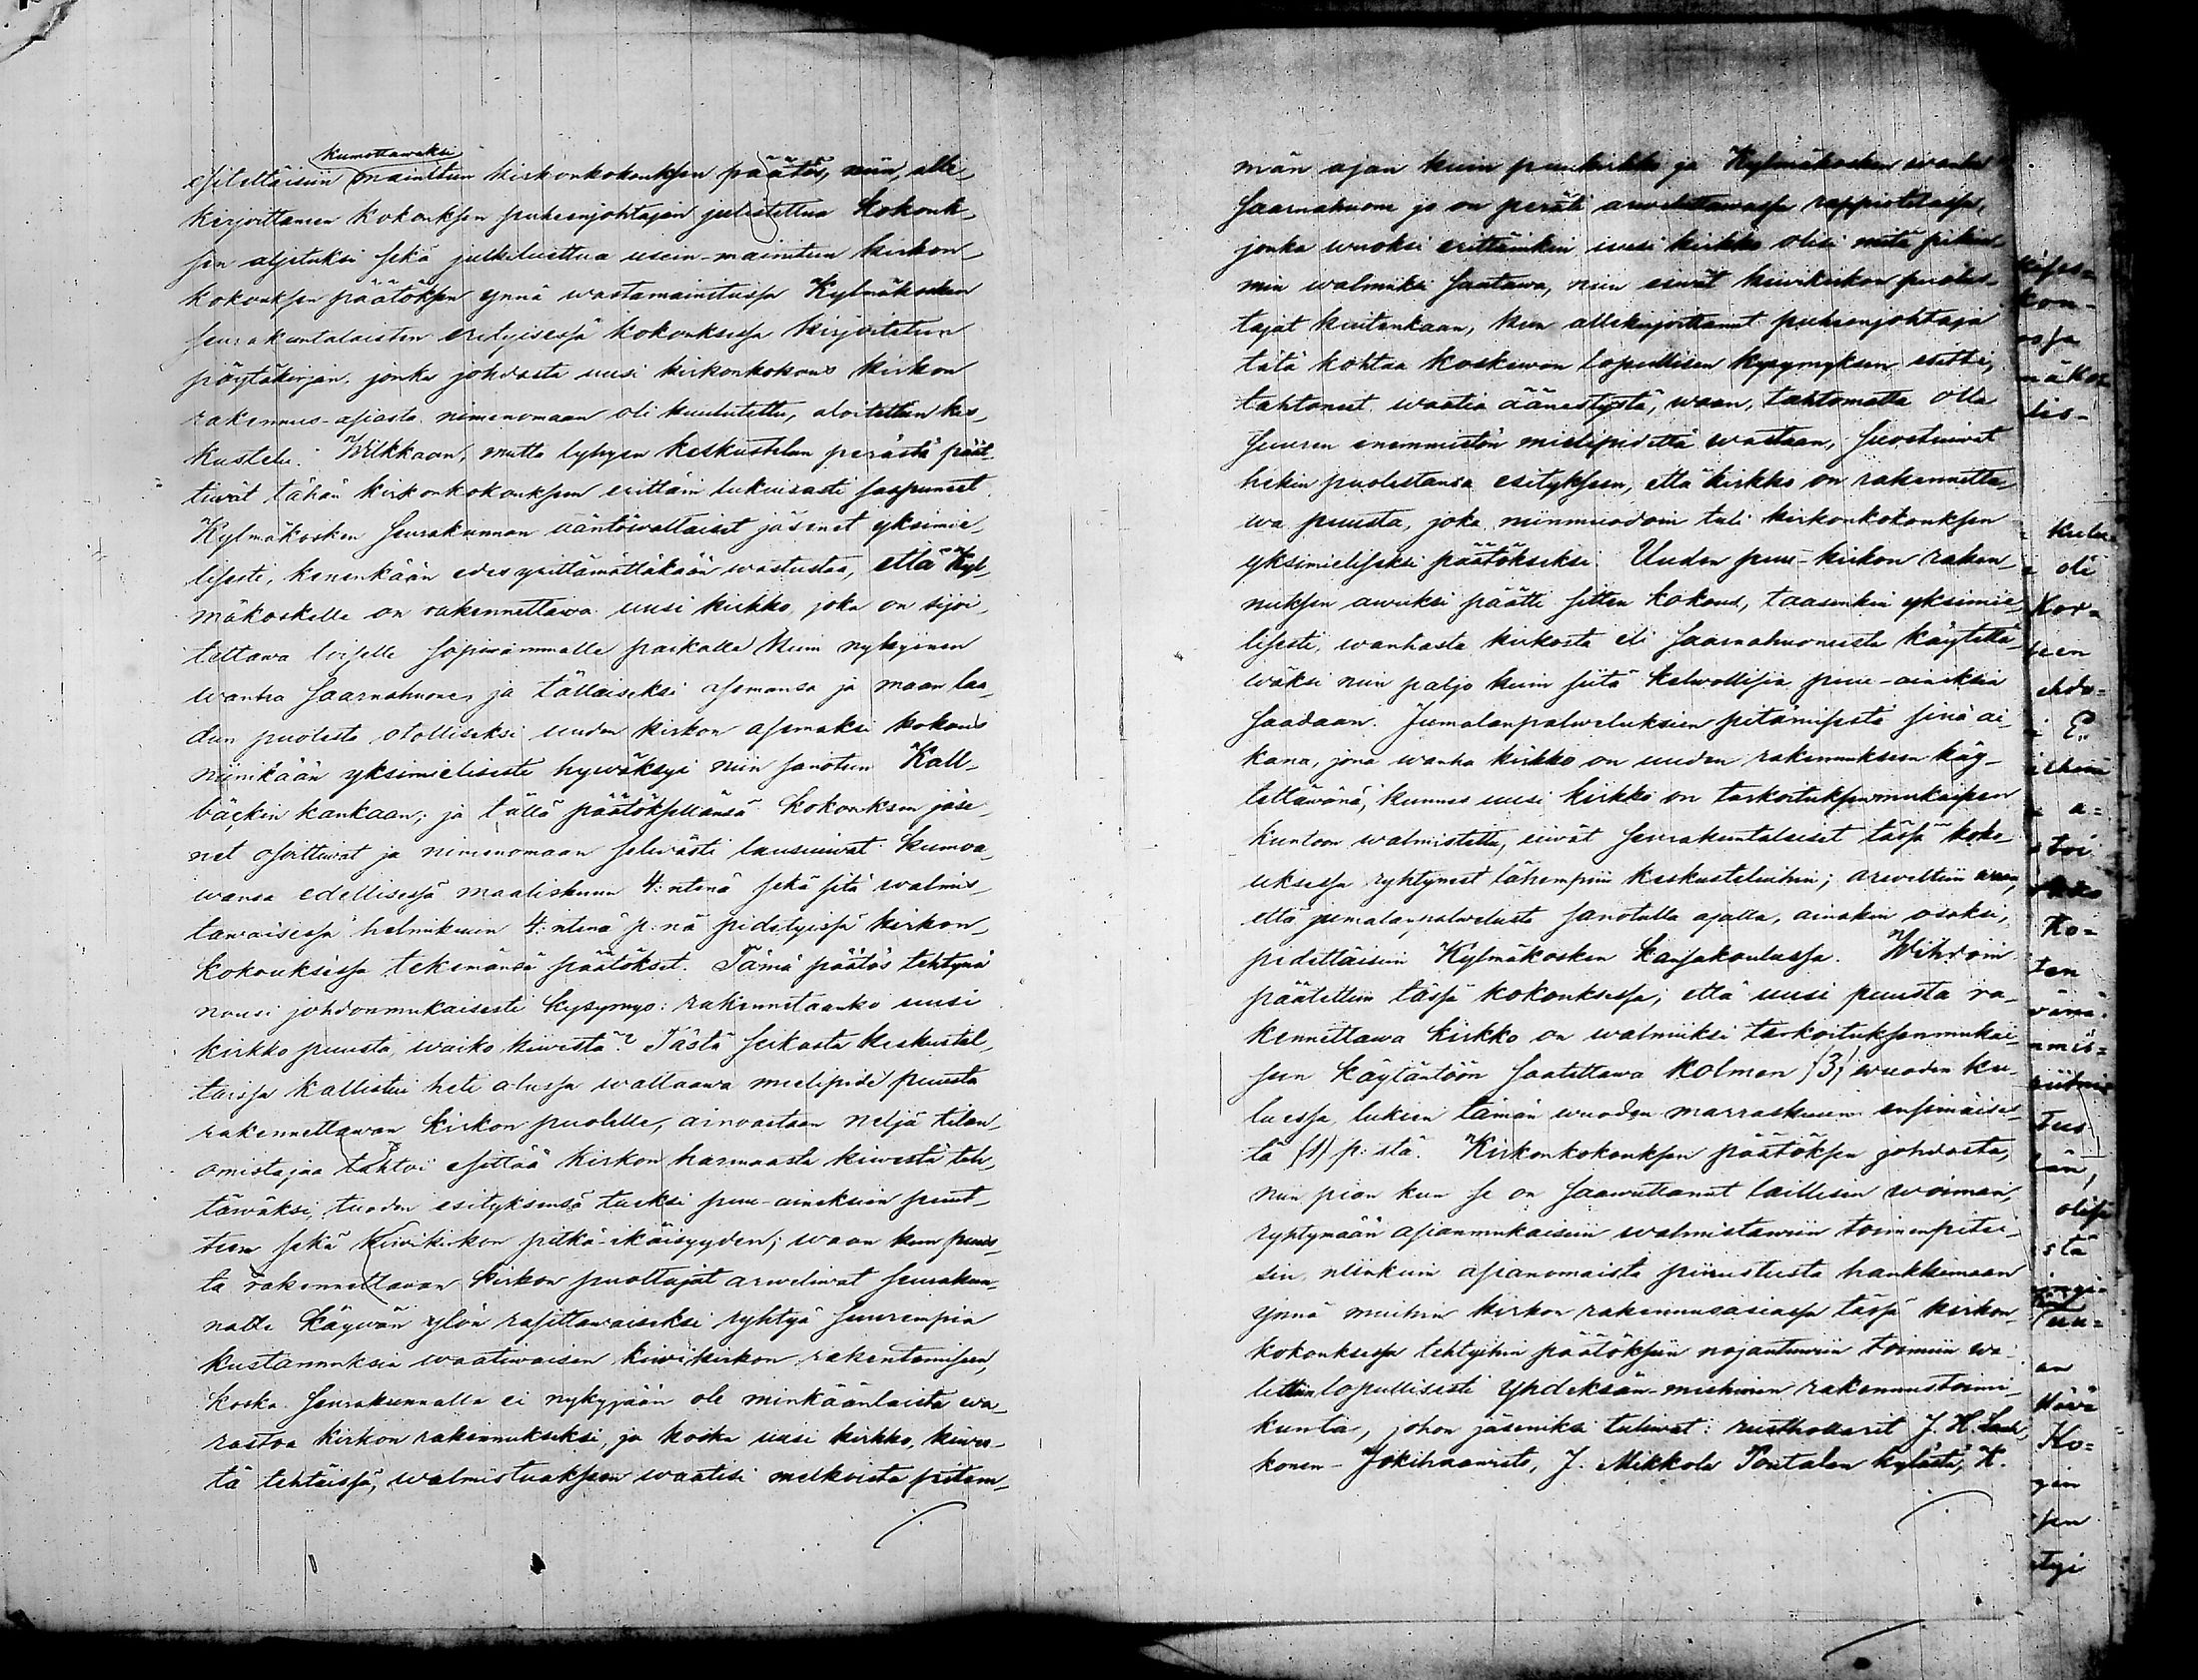 kumottawaksi
esiteltäisiin mainitun kirkonkokouksen päätös, niin, alle-
kirjoittaneen kokouksen puheenjohtajan julistettua kokouk-
sen aljetuksi sekä julkiluettua usein-mainitun kirkon-
kokouksen päätöksen ynnä wastamainitussa Kylmäkosken
seurakuntalaisten erityisessä kokouksessa kirjoitetun
pöytäkirjan, jonka johdosta uusi kirkonkokous kirkon
rakennus-asiasta nimenomaan oli kuulutettu, aloitettiin kes-
kustelu. Wilkkaan, mutta lyhyen keskustelun perästä päät-
tiwät tähän kirkonkokouksen erittäin lukuisasti saapuneet
Kylmäkosken seurakunnan ääntöwaltaiset jäsenet yksimie-
lisesti, kenenkään edes yrittämättäkään wastustaa, että Kyl-
mäkoskelle on rakennettawa uusi kirkko, joka on sijoi-
tettawa toiselle sopiwammalle paikalle kuin nykyinen
wanha saarnahuone, ja tällaiseksi asemansa ja maan laa-
dun puolesta otolliseksi uuden kirkon asemaksi kokous
niinikään yksimielisesti hywäksyi niin sanotun Kall-
bäckin kankaan; ja tällä päätöksellänsä kokouksen jäse-
net osoittiwat ja nimenomaan selwästi lausuiwat kumoa-
wansa edellisessä maaliskuun 4:ntenä sekä sitä walmis-
tawaisessa helmikuun 4:ntenä p:nä pidetyissä kirkon-
kokouksissa tekemänsä päätökset. Tämä päätös tehtynä
nousi johdonmukaisesti kysymys: rakennetaanko uusi
kirkko puusta, waiko kiwestä? Tästä seikasta keskustel-
taissa kallistui heti alussa waltaawa mielipide puusta
rakennettawan kirkon puolelle, ainoastaan neljä tilan-
omistajaa tahtoi esittää kirkon harmaasta kiwestä teh-
täwäksi, tuoden esityksensä tueksi puu-aineksien puut-
teen sekä kiwikirkon pitkä-ikäisyyden; waan kun puus-
ta rakennettawan kirkon puoltajat arweliwat seurakun-
nalle käywän ylön rasittawaiseksi ryhtyä suurempia
kustannuksia waatiwaisen kiwikirkon rakentamiseen,
koska seurakunnalla ei nykyjään ole minkäänlaista wa-
rastoa kirkon rakennukseksi, ja koska uusi kirkko, kiwes-
tä tehtäissä, walmistuakseen waatisi melkoista pitem-
män ajan kuin puukirkko ja Kylmäkosken wanha
saarnahuone jo on peräti arweluttawassa rappiotilassa,
jonka wuoksi erittäinkin uusi kirkko olisi mitä pikim-
min walmiiksi saatawa, niin eiwät kiwikirkon puolus-
tajat kuitenkaan, kun allekirjoittanut puheenjohtaja
tätä kohtaa koskewan lopullisen kysymyksen esitti,
tahtoneet waatia äänestystä, waan, tahtomatta olla
suuren enemmistön mielipidettä wastaan, suostuiwat
hekin puolestansa esitykseen, että kirkko on rakennetta-
wa puusta, joka niinmuodoin tuli kirkonkokouksen
yksimieliseksi päätökseksi. Uuden puu-kirkon raken-
nuksen awuksi päätti sitten kokous, taasenkin yksimie-
lisesti, wanhasta kirkosta eli saarnahuoneesta käytettä-
wäksi niin paljo kuin siitä kelwollisia puu-aineksia
saadaan. Jumalanpalweluksien pitämisestä sinä ai-
kana, jona wanha kirkko on uuden rakennukseen käy-
tettäwänä, kunnes uusi kirkko on tarkoituksenmukaiseen
kuntoon walmistettu, eiwät seurakuntalaiset tässä koko-
uksessa ryhtyneet lähempiin keskusteluihin; arweltiin waan,
että jumalanpalwelusta sanotulla ajalla, ainakin osaksi,
pidettäisiin Kylmäkosken kansakoulussa. Wihdoin
päätettiin tässä kokouksessa, että uusi puusta ra-
kennettawa kirkko on walmiiksi tarkoituksenmukai-
seen käytäntöön saatettawa kolmen (3) wuoden ku-
luessa, lukien tämän wuoden marraskuun ensimäises-
tä (1) p:stä. Kirkonkokouksen päätöksen johdosta,
niin pian kun se on saawuttanut laillisen woiman,
ryhtymään asianmukaisiin walmistawiin toimenpitei-
siin, niinkuin asianomaista piirustusta hankkimaan
ynnä muihin kirkon rakennusasiassa tässä kirkon-
kokouksessa tehtyihin päätöksiin nojautuwiin toimiin wa-
littiin lopullisesti yhdeksän-miehinen rakennustoimi-
kunta, johon jäseniksi tuliwat: rusthollarit J. H.
konen - Jokihaawisto, J. Mikkola Pontalan kylästä, K.
kon-
kulu-
oli
Kor-
een
ehdo-
E.
a-
toi
Ko-
ten
tus
olisi
stä
an
Ko-
gin
sen